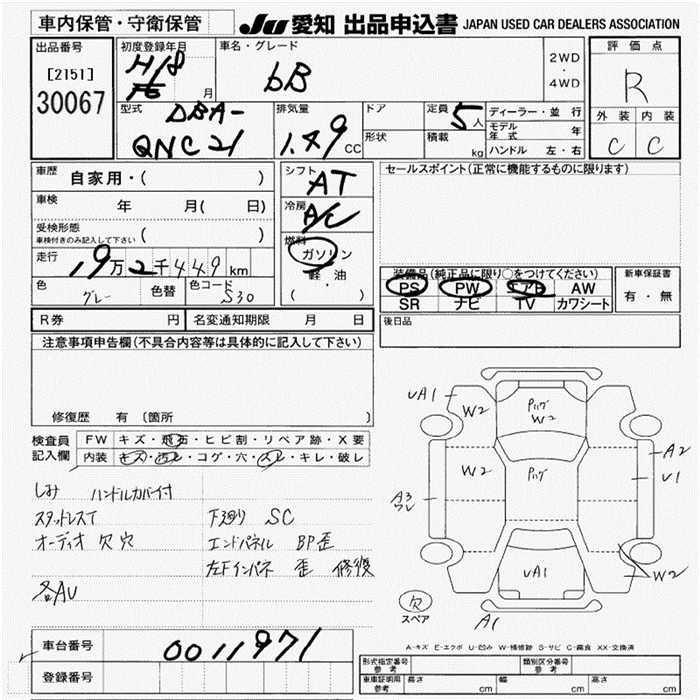 車内保管・守衛保管
JU 愛知 出品申込書 JAPAN USED CAR DEALERS ASSOCIATION
出品番号
[2151]
30067
初度登録年月
H18
月
車名・グレード
bB
2WD
・
4WD
評価点
R
外装 内装
C C
型式
DBA-
QNC21
排気量
1.49 CC
ドア
形状
定員 5人
積載 kg
ディーラー・並行
モデル年式 年
ハンドル 左・右
車歴 自家用・( )
車検 年 月( 日)
受検形態
車検付きのみ記入して下さい ( )
走行 19万2千449km
色 グレー
色替
色コード S30
シフト AT
冷房 A/C
燃料
ガソリン
・
軽油
( )
セールスポイント(正常に機能するものに限ります)
装備品(純正品に限り○をつけてください)
PS PW エアB AW
SR ナビ TV カワシート
新車保証書
有・無
後日品
R券 円 名変通知期限 月 日
注意事項申告欄(不具合内容等は具体的に記入して下さい)
修復歴 有 〔箇所 〕
検査員記入欄
FW キズ・飛石・ヒビ割・リペア跡・X要
内装 キズ・汚レ・コゲ・穴・スレ・キレ・破レ
しみ ハンドルカバー付
スタッドレスT 下廻り SC
オーディオ欠穴 エンドパネル BP歪
左Fインパネ 歪 修復
各AU
UA1
W2
Pハゲ
W2
W2
Pハゲ
A2
U1
A3
UA1
W2
欠
スペア
A1
A-キズ E-エクボ U-凹み W-補修跡 S-サビ C-腐食 XX-交換済
車台番号 0011971
登録番号
形式指定番号 参考
類別区分番号 参考
車庫証明用 参考 長さ cm 幅 cm 高さ cm